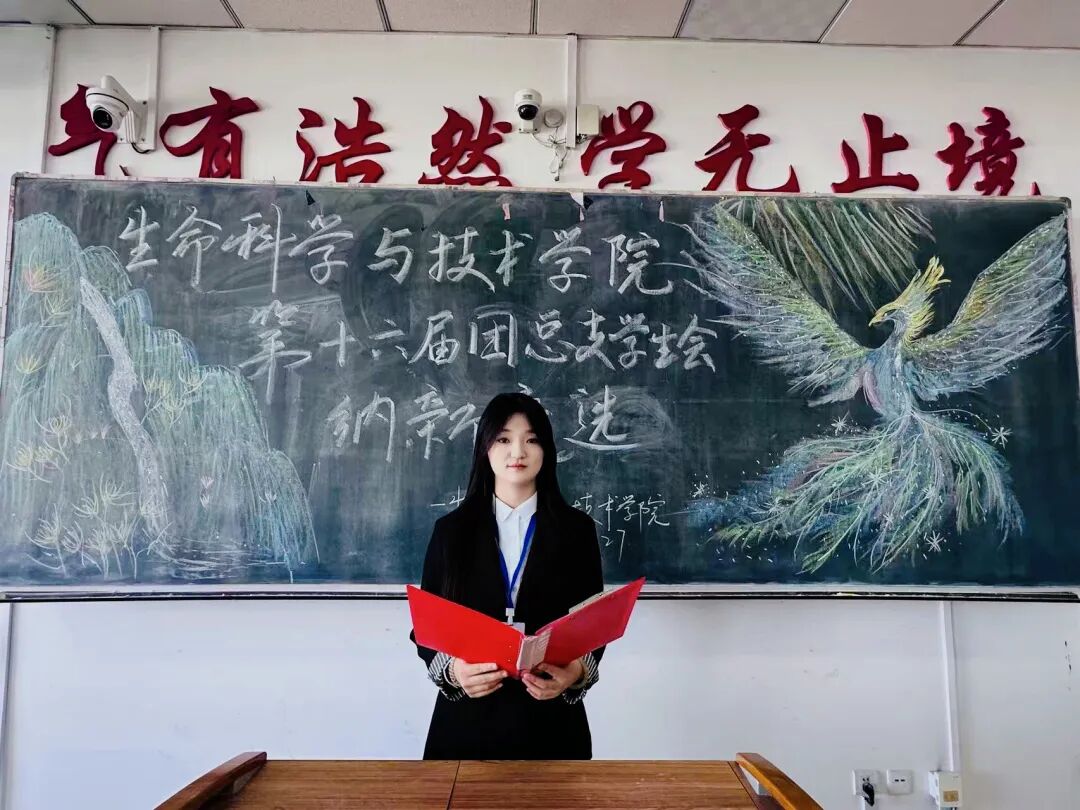 气有浩然 学无止境
生命科学与技术学院
第十六届团总支学生会
纳新 选
技术学院
27